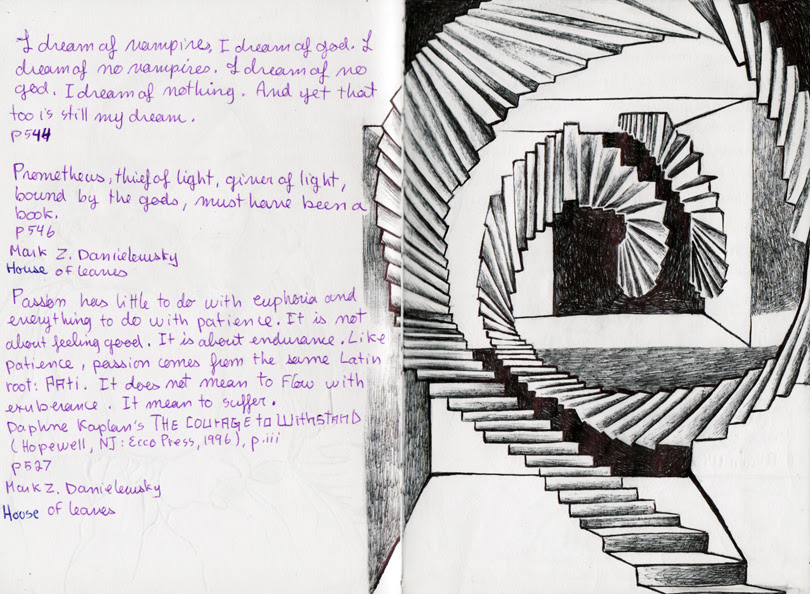 I dream of vampires, I dream of god. I
dream of no vampires. I dream of no
god. I dream of nothing. And yet that
too is still my dream.
P544
Prometheus, thief of light, giver of light,
bound by the gods, must have been a
book.
P546
Mark Z. Danielewsky
House of leaves
Passion has little to do with euphoria and
everything to do with patience. It is not
about feeling good. It is about endurance. Like
patience, passion comes from the same Latin
root: PATi. It does not mean to flow with
exuberance. It mean to suffer.
Daphne Kaplan's THE COURAGE TO WITHSTAND
(Hopewell, NJ: Ecco Press, 1996), p.iii
P527
Mark Z. Danielewsky
House of leaves